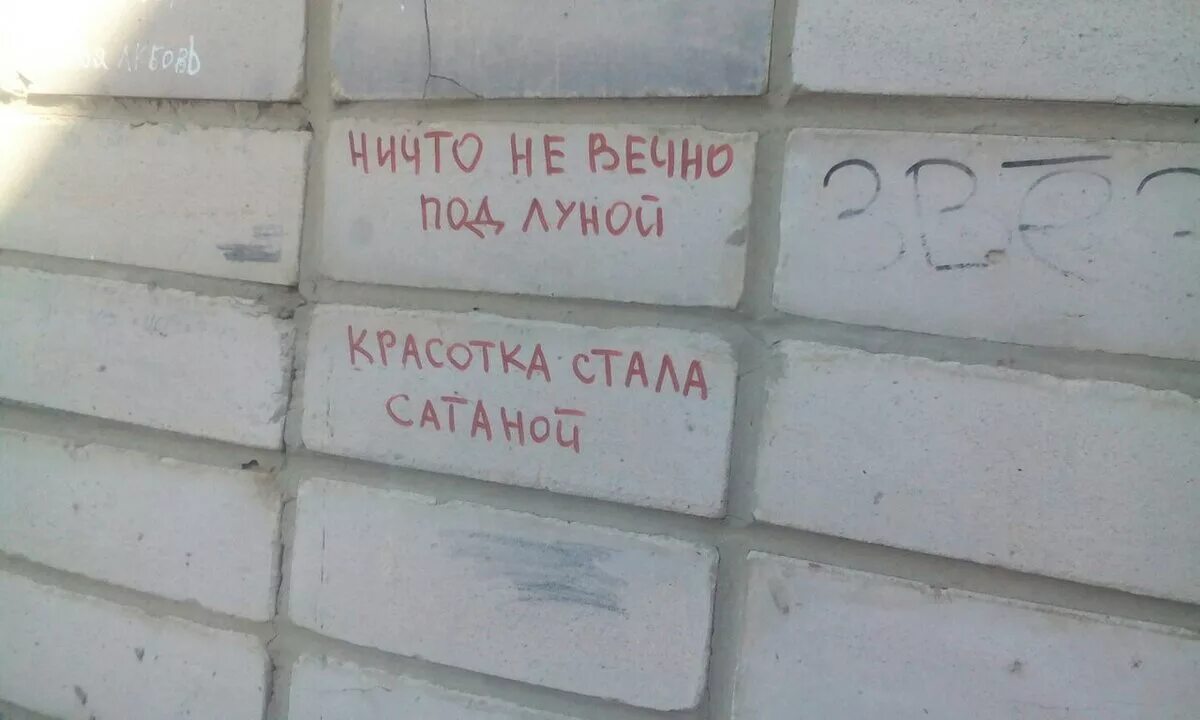 любовь
НИЧТО НЕ ВЕЧНО
ПОД ЛУНОЙ
КРАСОТКА СТАЛА
САТАНОЙ